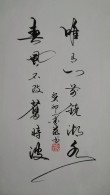 唯有门前镜湖水
春风不改旧时波